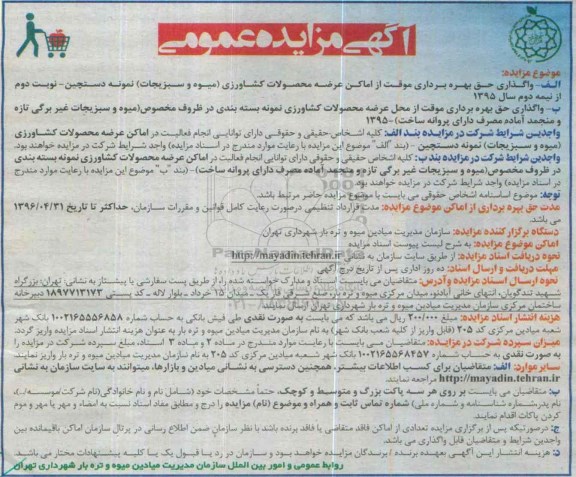 آگهی مزایده عمومی
موضوع مزایده:
الف- واگذاری حق بهره برداری موقت از اماکن عرضه محصولات کشاورزی (میوه و سبزیجات) نمونه دستچین- نوبت دوم
از نیمه دوم سال ۱۳۹۵
ب- واگذاری حق بهره برداری موقت از محل عرضه محصولات کشاورزی نمونه بسته بندی در ظروف مخصوص(میوه و سبزیجات غیر برگی تازه
و منجمد آماده مصرف دارای پروانه ساخت)-۱۳۹۵
واجدین شرایط شرکت در مزایده بند الف: کلیه اشخاص حقیقی و حقوقی دارای توانایی انجام فعالیت در اماکن عرضه محصولات کشاورزی
(میوه و سبزیجات) نمونه دستچین - (بند "الف" موضوع این مزایده با رعایت موارد مندرج در اسناد مزایده) واجد شرایط شرکت در مزایده خواهند بود.
واجدین شرایط شرکت در مزایده بند ب: کلیه اشخاص حقیقی و حقوقی دارای توانایی انجام فعالیت در اماکن عرضه محصولات کشاورزی نمونه بسته بندی
در ظروف مخصوص(میوه و سبزیجات غیر برگی تازه و منجمد آماده مصرف دارای پروانه ساخت)- (بند "ب" موضوع این مزایده با رعایت موارد مندرج
در اسناد مزایده) واجد شرایط شرکت در مزایده خواهند بود.
توجه: موضوع اساسنامه اشخاص حقوقی می بایست با موضوع مزایده حاضر مرتبط باشد.
مدت حق بهره برداری از اماکن موضوع مزایده: مدت قرارداد تنظیمی درصورت رعایت کامل قوانین و مقررات سازمان، حداکثر تا تاریخ ۱۳۹۶/۰۴/۳۱
می باشد.
دستگاه برگزار کننده مزایده: سازمان مدیریت میادین میوه و تره بار شهرداری تهران
اماکن موضوع مزایده: به شرح لیست پیوست اسناد مزایده
نحوه دریافت اسناد مزایده: از طریق سایت سازمان به نشانی http://mayadin.tehran.ir
مهلت دریافت و ارسال اسناد: ده روز اداری پس از تاریخ درج آگهی
نحوه ارسال اسناد مزایده وآدرس: متقاضیان می بایست اسناد و مدارک خواسته شده را از طریق پست سفارشی یا پیشتاز به نشانی: تهران، بزرگراه
شهید تندگویان، انتهای خانی آبادنو، میدان مرکزی میوه و تره بار، ضلع شرقی فاز یک - میدان ۱۵ خرداد - بلوار لاله - کد پستی ۱۸۹۷۷۱۳۱۷۳ دبیرخانه
ساختمان مرکزی سازمان مدیریت میادین میوه و تره بار شهرداری تهران ارسال نمایند.
هزینه انتشار اسناد مزایده: مبلغ ۲۰۰/۰۰۰ ریال می باشد که می بایست به صورت نقدی طی فیش بانکی به حساب شماره ۱۰۰۲۱۶۵۵۵۶۸۵۸ بانک شهر
شعبه میادین مرکزی کد ۲۰۵ (قابل واریز از کلیه شعب بانک شهر) به نام سازمان مدیریت میادین میوه و تره بار به عنوان هزینه انتشار اسناد مزایده واریز گردد.
میزان سپرده شرکت در مزایده: متقاضیان می بایست با رعایت موارد مندرج در ماده ۲ و ماده ۳ اسناد، مبلغ سپرده شرکت در مزایده را
به صورت نقدی به حساب شماره ۱۰۰۲۱۶۵۵۶۸۴۵۷ بانک شهر شعبه میادین مرکزی کد ۲۰۵ به نام سازمان مدیریت میادین میوه و تره بار واریز نمایند.
سایر موارد: الف: متقاضیان برای کسب اطلاعات بیشتر، همچنین دسترسی به نشانی میادین و بازارها، میتوانند به سایت سازمان به نشانی
http://mayadin.tehran.ir مراجعه نمایند.
ب: متقاضیان می بایست بر روی هر سه پاکت بزرگ و متوسط و کوچک، حتماً مشخصات خود (شامل نام و نام خانوادگی(نام شرکت/موسسه/..)،
نام پدر، شماره شناسنامه و شماره ملی) شماره تماس ثابت و همراه و موضوع (نام) مزایده را درج و مطابق مفاد اسناد نسبت به امضاء و مهر یا مهر و موم
کردن پاکات اقدام نمایند.
ج: درصورتیکه پس از برگزاری مزایده تعدادی از اماکن فاقد متقاضی یا فاقد برنده باشد با نظر سازمان ضمن اطلاع رسانی در پرتال سازمان اماکن باقیمانده بین
واجدین شرایط و متقاضیان قابل واگذاری می باشد.
د: هزینه انتشار این آگهی بعهده برنده / برندگان مزایده خواهد بود و سازمان در رد یا قبول یک یا کلیه پیشنهادات مختار می باشد.
روابط عمومی و امور بین الملل سازمان مدیریت میادین میوه و تره بار شهرداری تهران